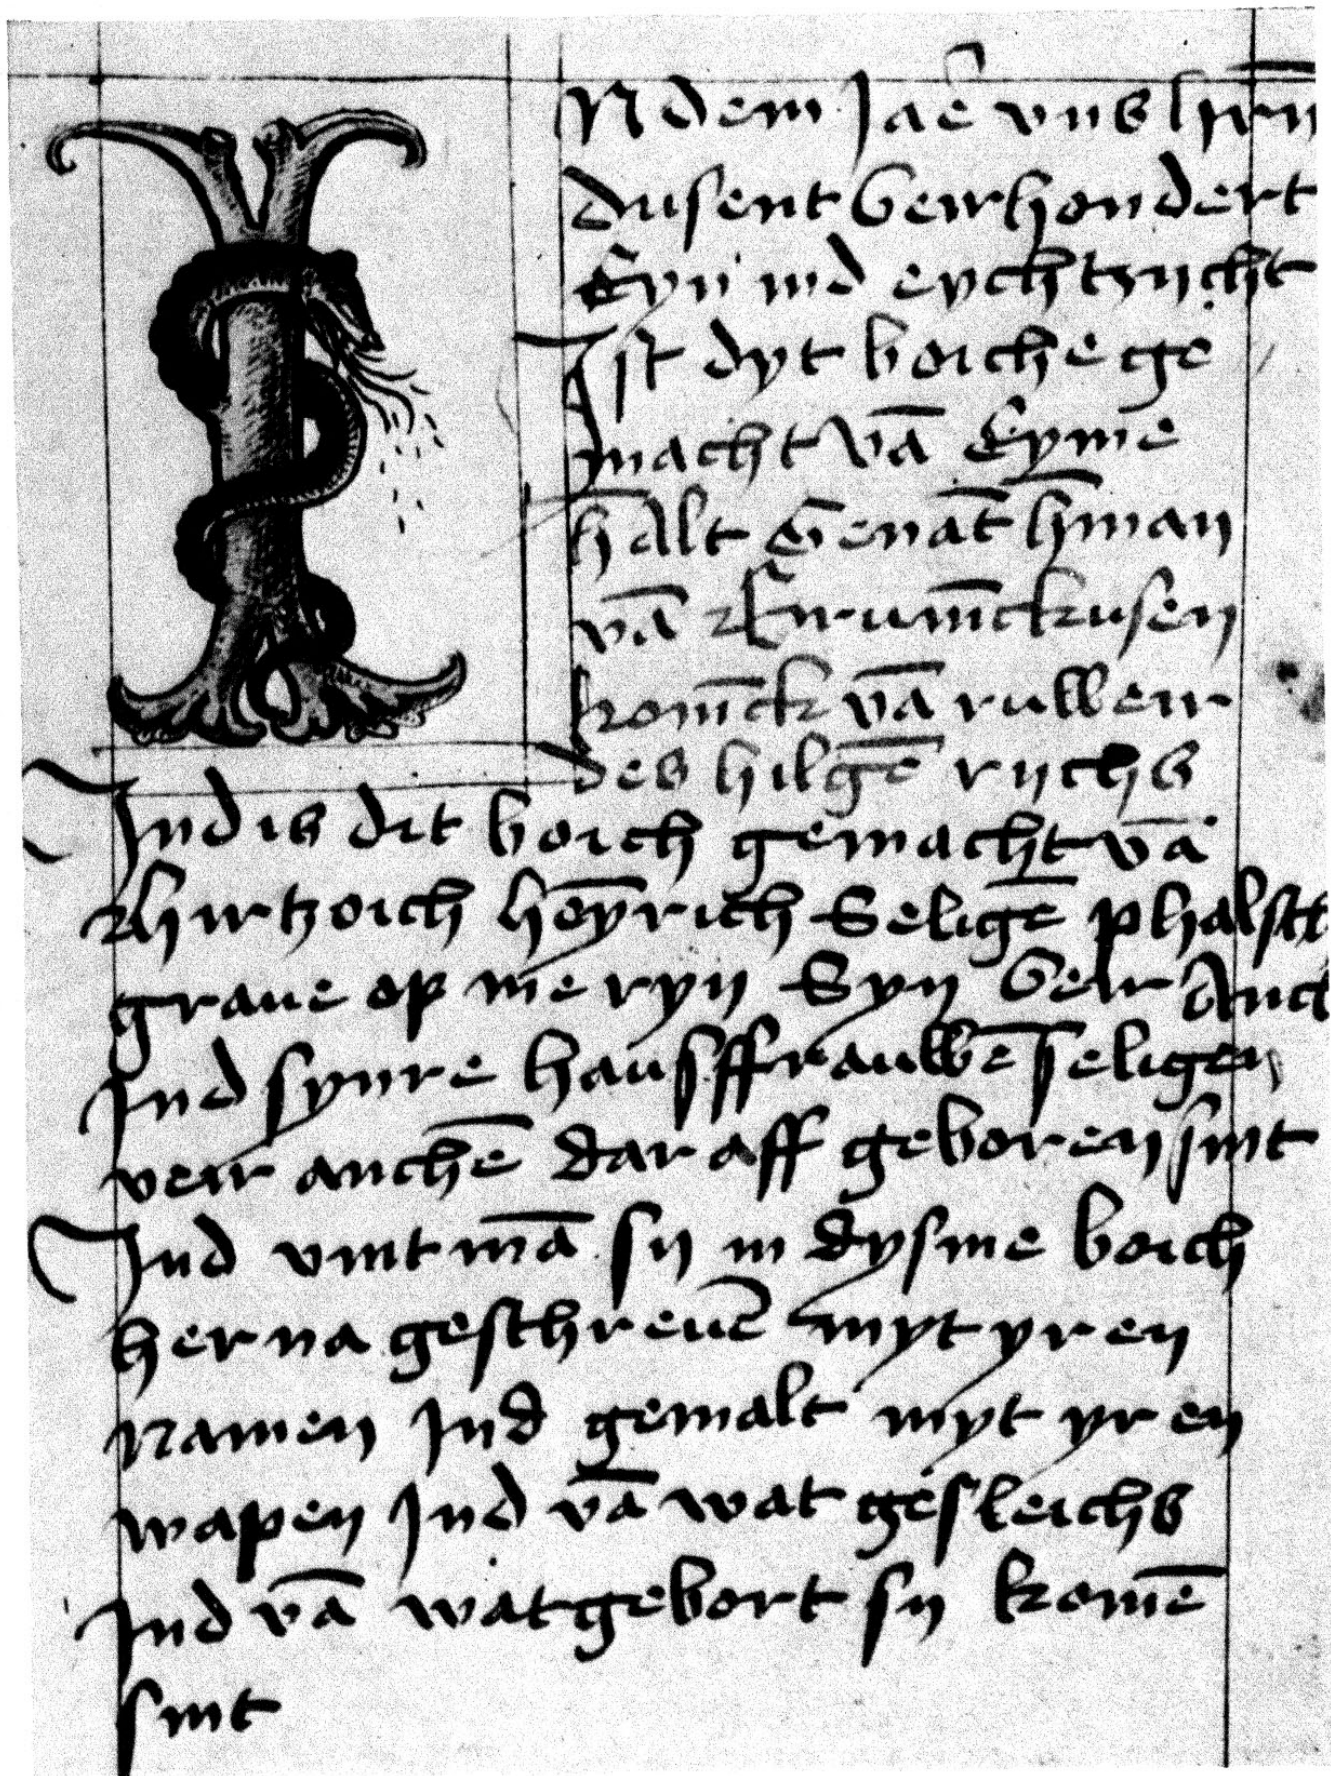 IN dem Jaer̄ vnß hrn̄
dusent veirhondert
Eyn ind eychtzicht
Jst dyt boiche ge
macht vā Eyme
halt Genāt h̄man
vā Brunīckusen
konīck vā ruwen
des hilgē rijchs
Jnd is dit boich gemacht vā
hirtzoich heȳrich Seligē phalstz
graue op me ryn Syn veir Anch
Jnd synre hausffrauwē seligen
veir anchē dar aff geboren sint
Jnd vint mā sy in dysme boich
her na geschreuē myt yren
namen Jnd gemalt myt yren
wapen Jnd vā wat gesleichs
Jnd vā wat gebort sy komē
sint